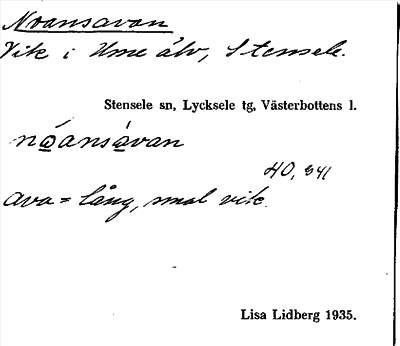 Noansavan
Vik i Ume älv, Stensele.
Stensele sn, Lycksele tg, Västerbottens l.
nóansàvan
40, 341
ava = lång, smal vik.
Lisa Lidberg 1935.